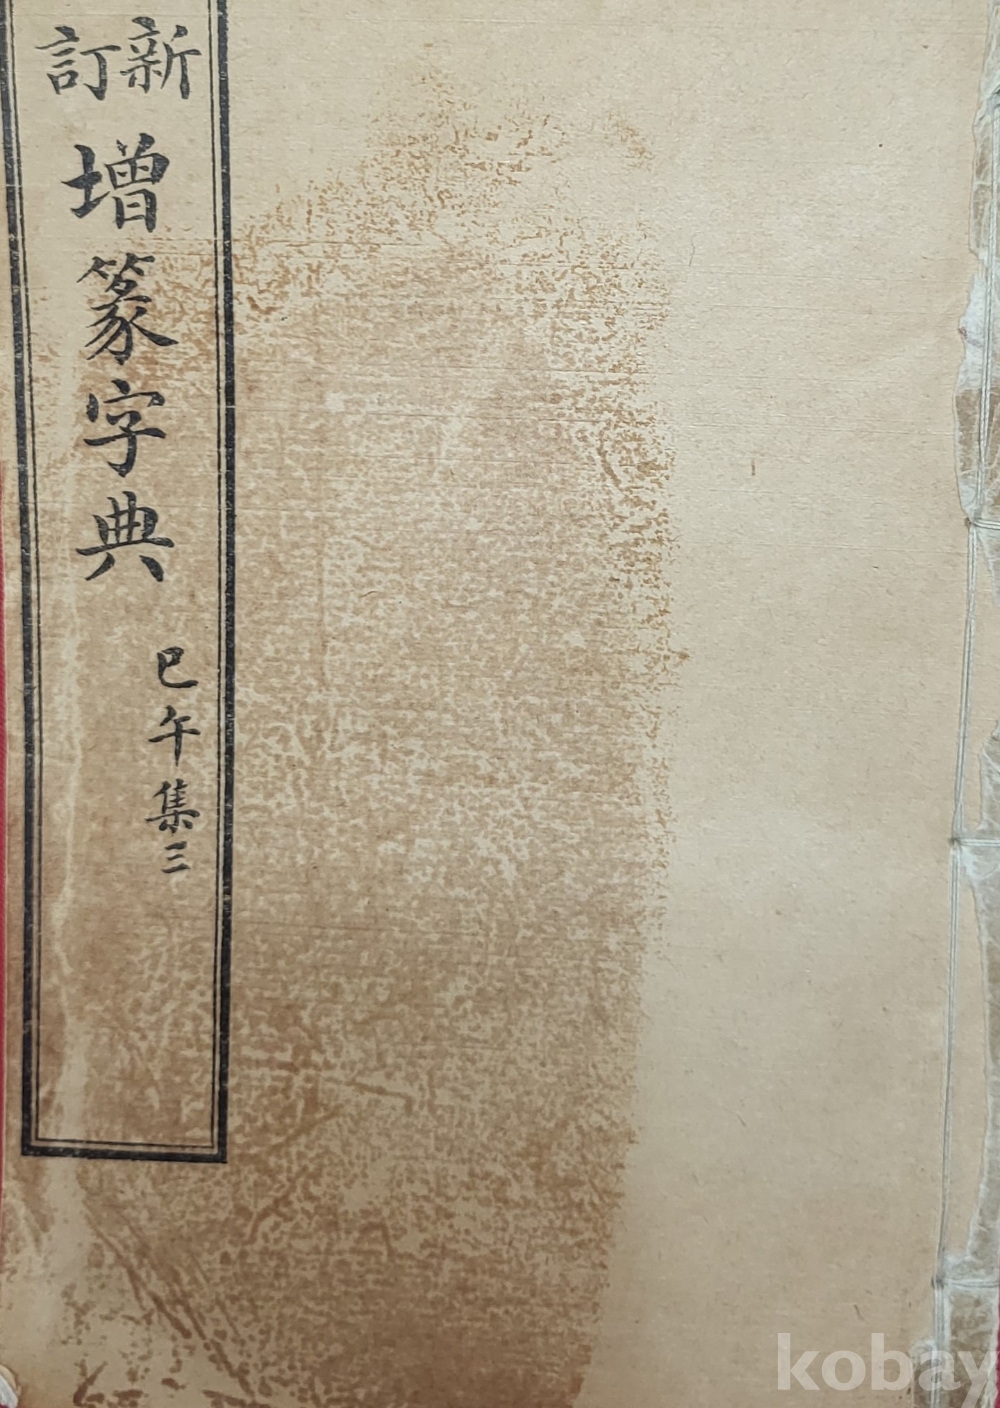 新訂
增篆字典
巳午集三
kobay